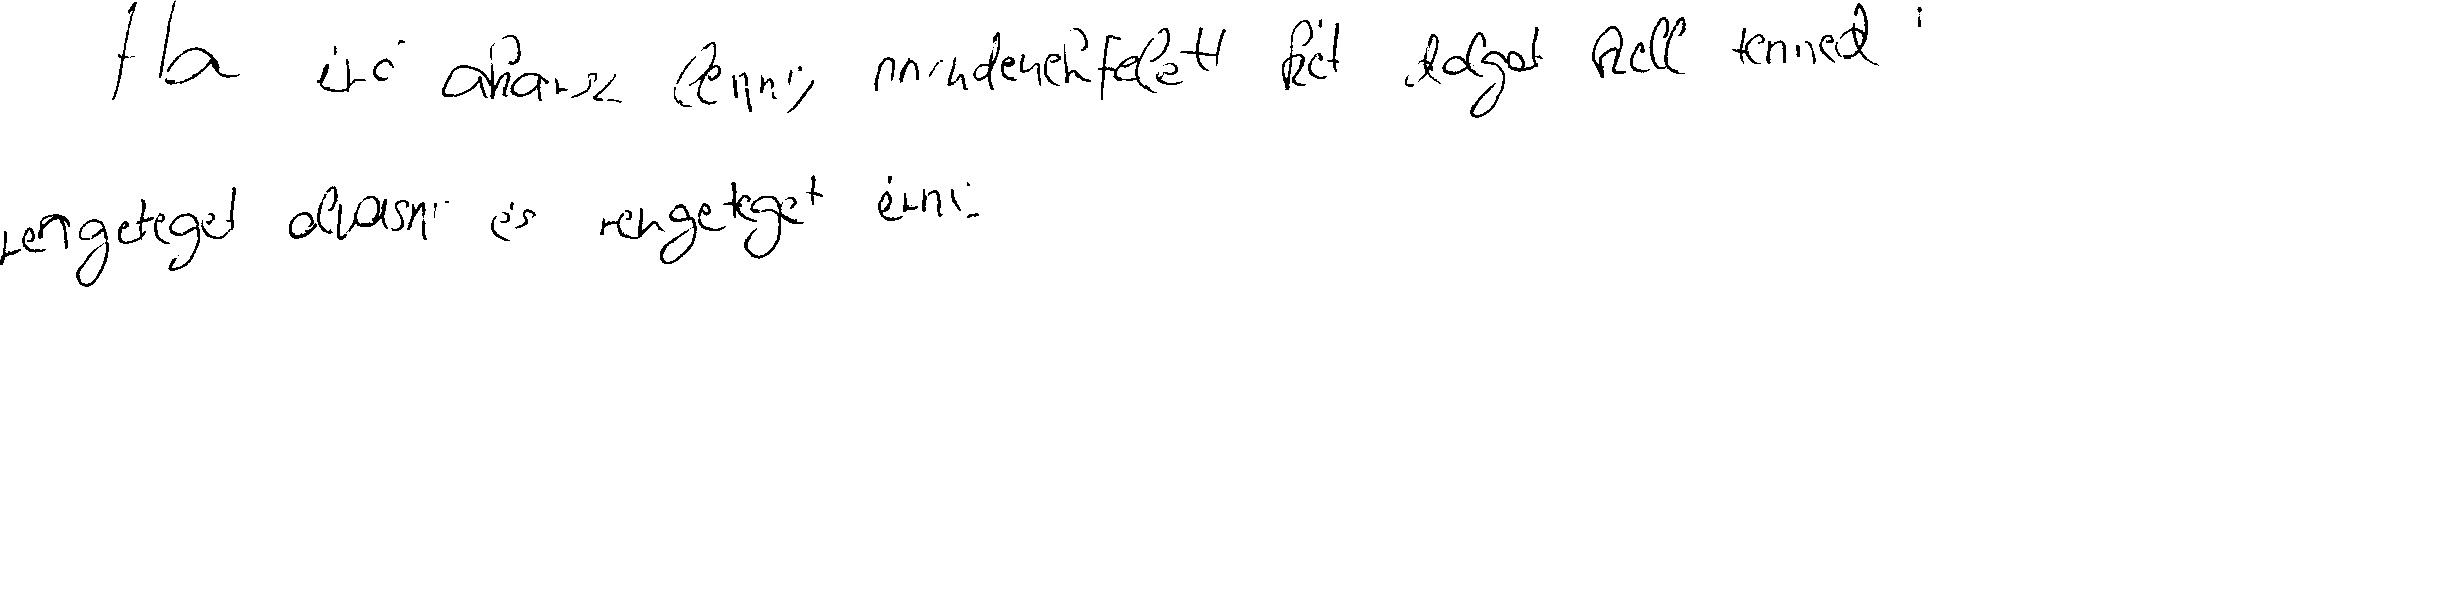 Ha író akarsz lenni, mindenekfelett két dolgot kell tenned :
rengeteget olvasni és rengeteget írni.